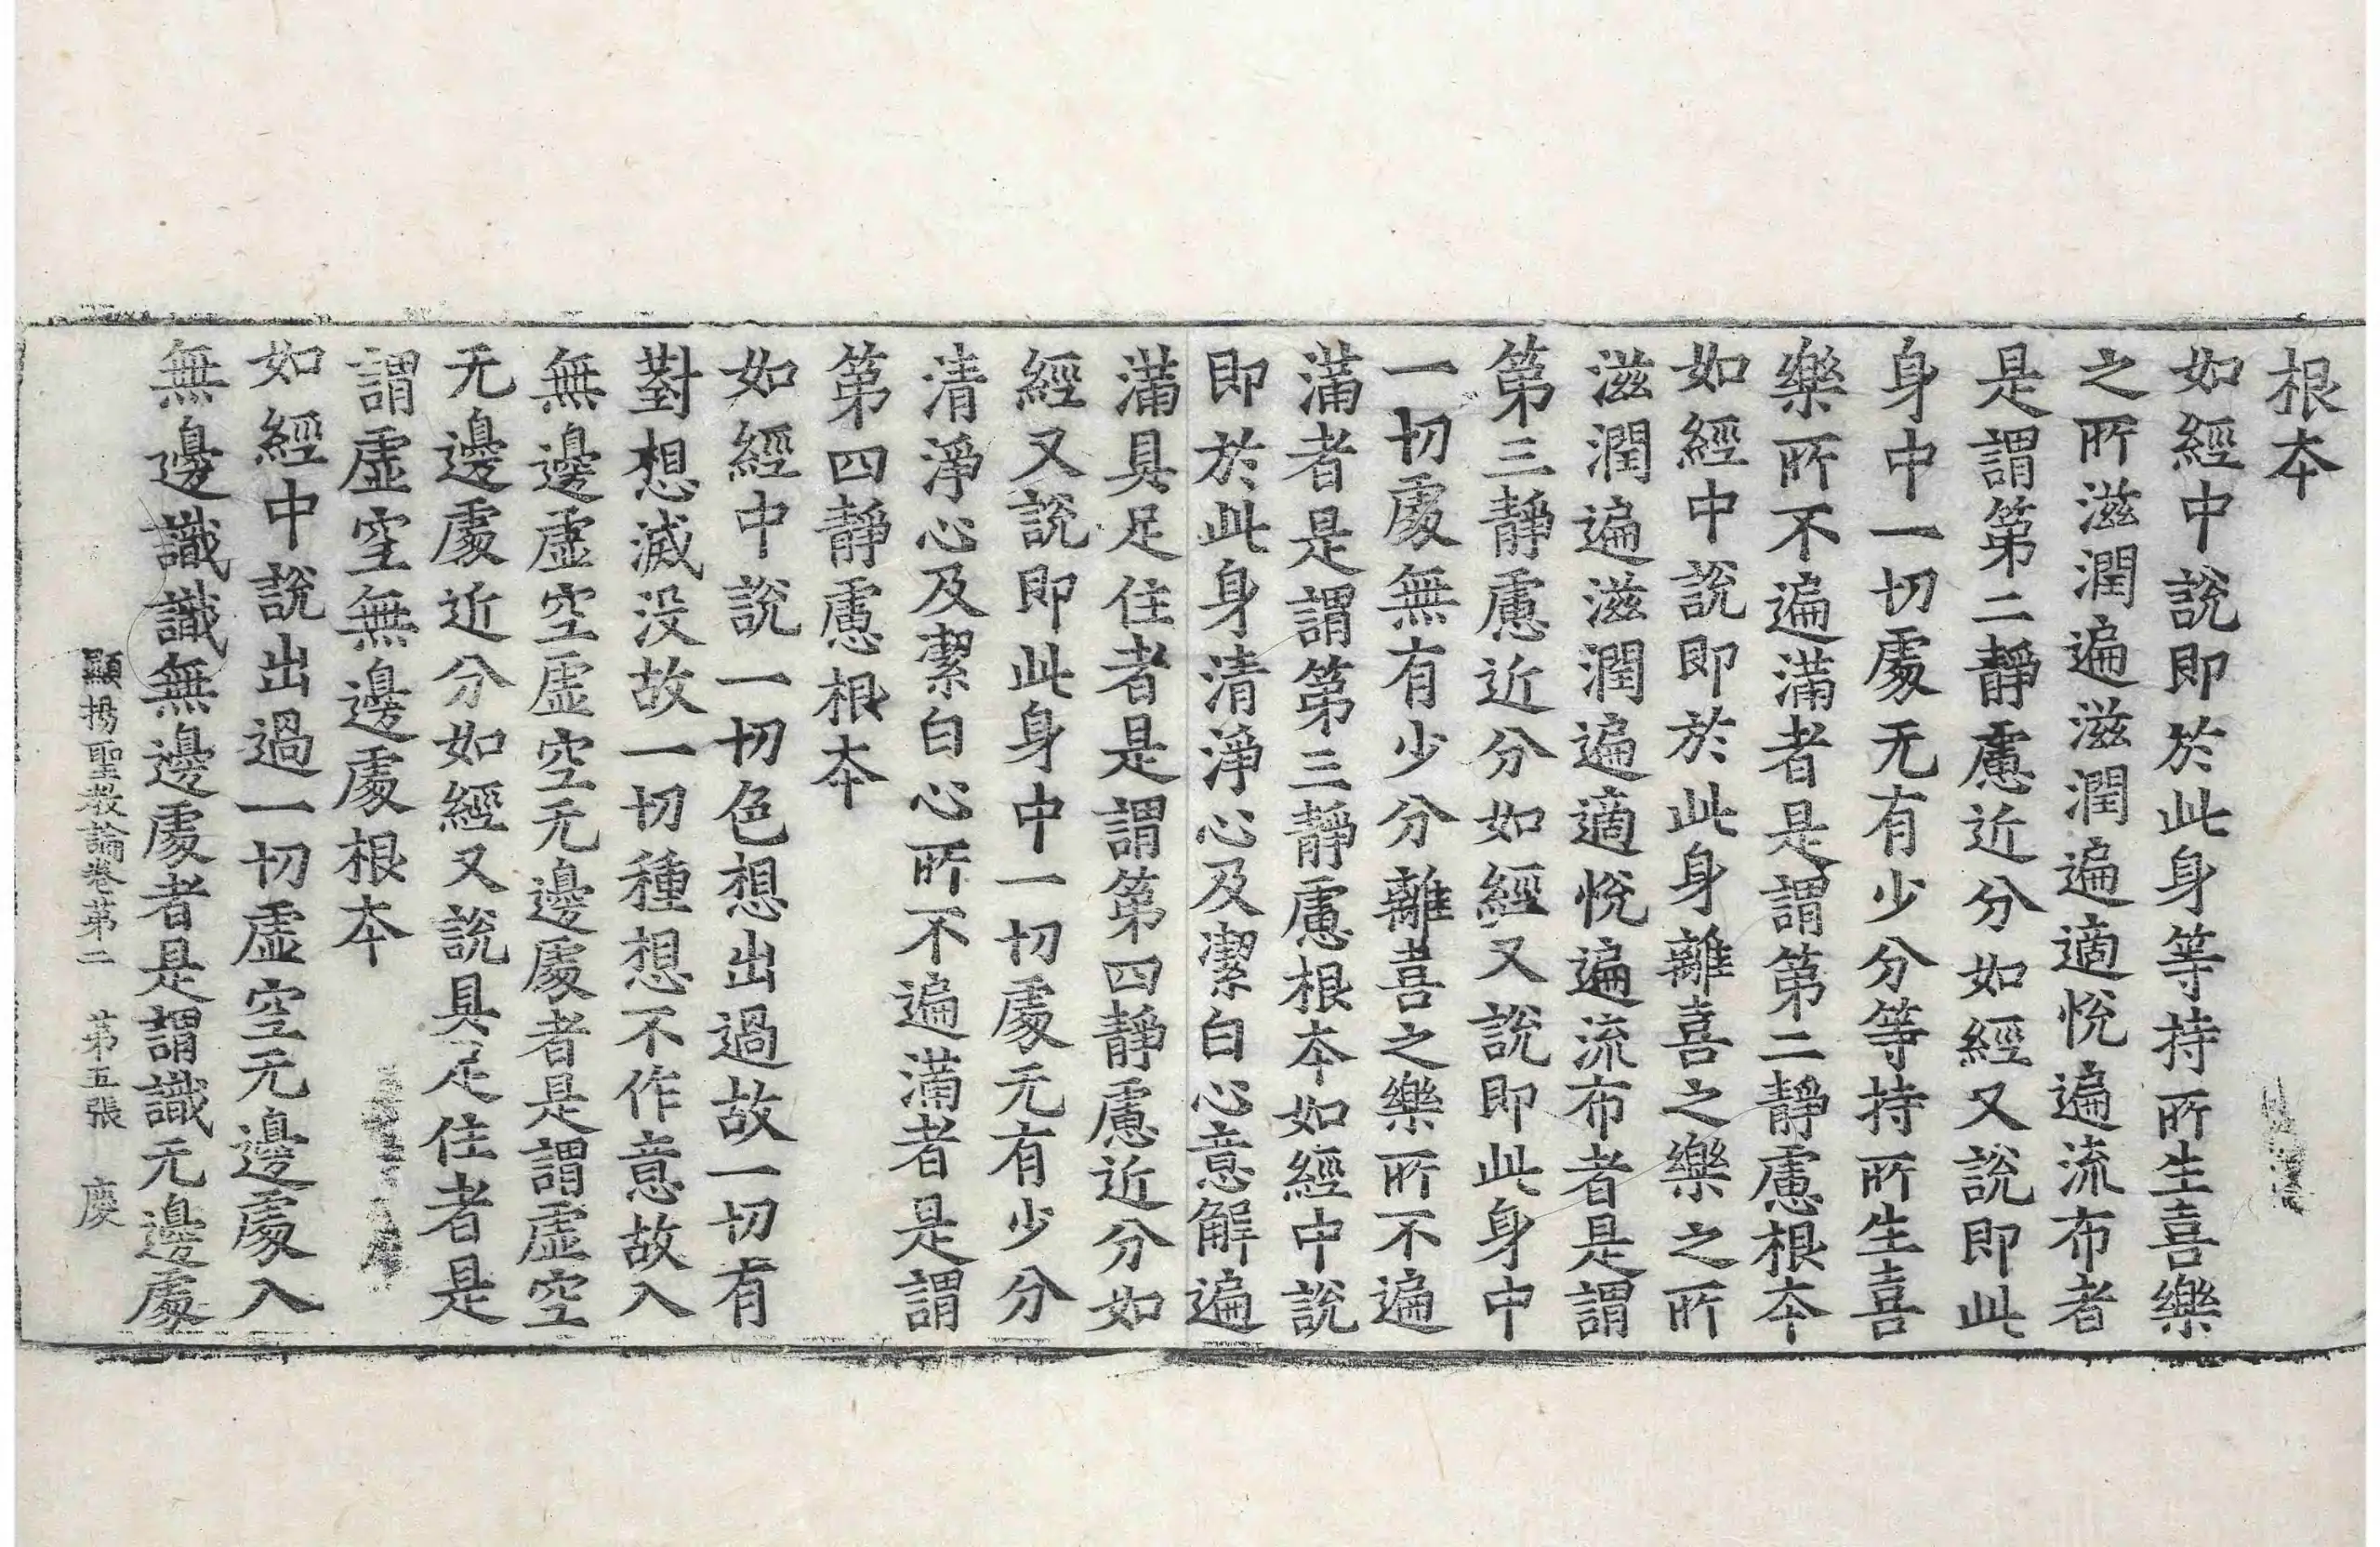 根本
如經中說即於此身等持所生喜樂
之所滋潤遍滋潤遍適悅遍流布者
是謂第二靜慮近分如經又說即此
身中一切處无有少分等持所生喜
樂所不遍滿者是謂第二靜慮根本
如經中說即於此身離喜之樂之所
滋潤遍滋潤遍適悅遍流布者是謂
第三靜慮近分如經又說即此身中
一切處無有少分離喜之樂所不遍
滿者是謂第三靜慮根本如經中說
即於此身清淨心及潔白心意解遍
滿具足住者是謂第四靜慮近分如
經又說即此身中一切處无有少分
清淨心及潔白心所不遍滿者是謂
第四靜慮根本
如經中說一切色想出過故一切有
對想滅没故一切種想不作意故入
無邊虛空虛空无邊處者是謂虛空
无邊處近分如經又說具足住者是
謂虛空無邊處根本
如經中說出過一切虛空无邊處入
無邊識識無邊處者是謂識无邊處
顯揚聖教論卷第二 第五張 慶